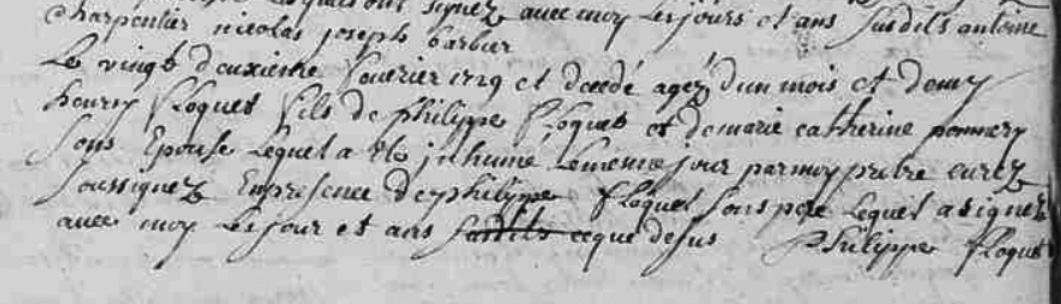 signez avec moy les jours et ans susdits antoine
Charpentier nicolas joseph barbier
Le vingt deuxieme fevrier 1729 et decedé agez d'un mois et demy
henry floquet fils de philippe floquet et de marie catherine pommery
sons Epouse lequel a ete jnhumé le meme jour par moy pretre curez
soussignez En presence de philippe floquet sons pere lequel a signez
avec moy les jour et ans susdits ce que desus Philippe floquet